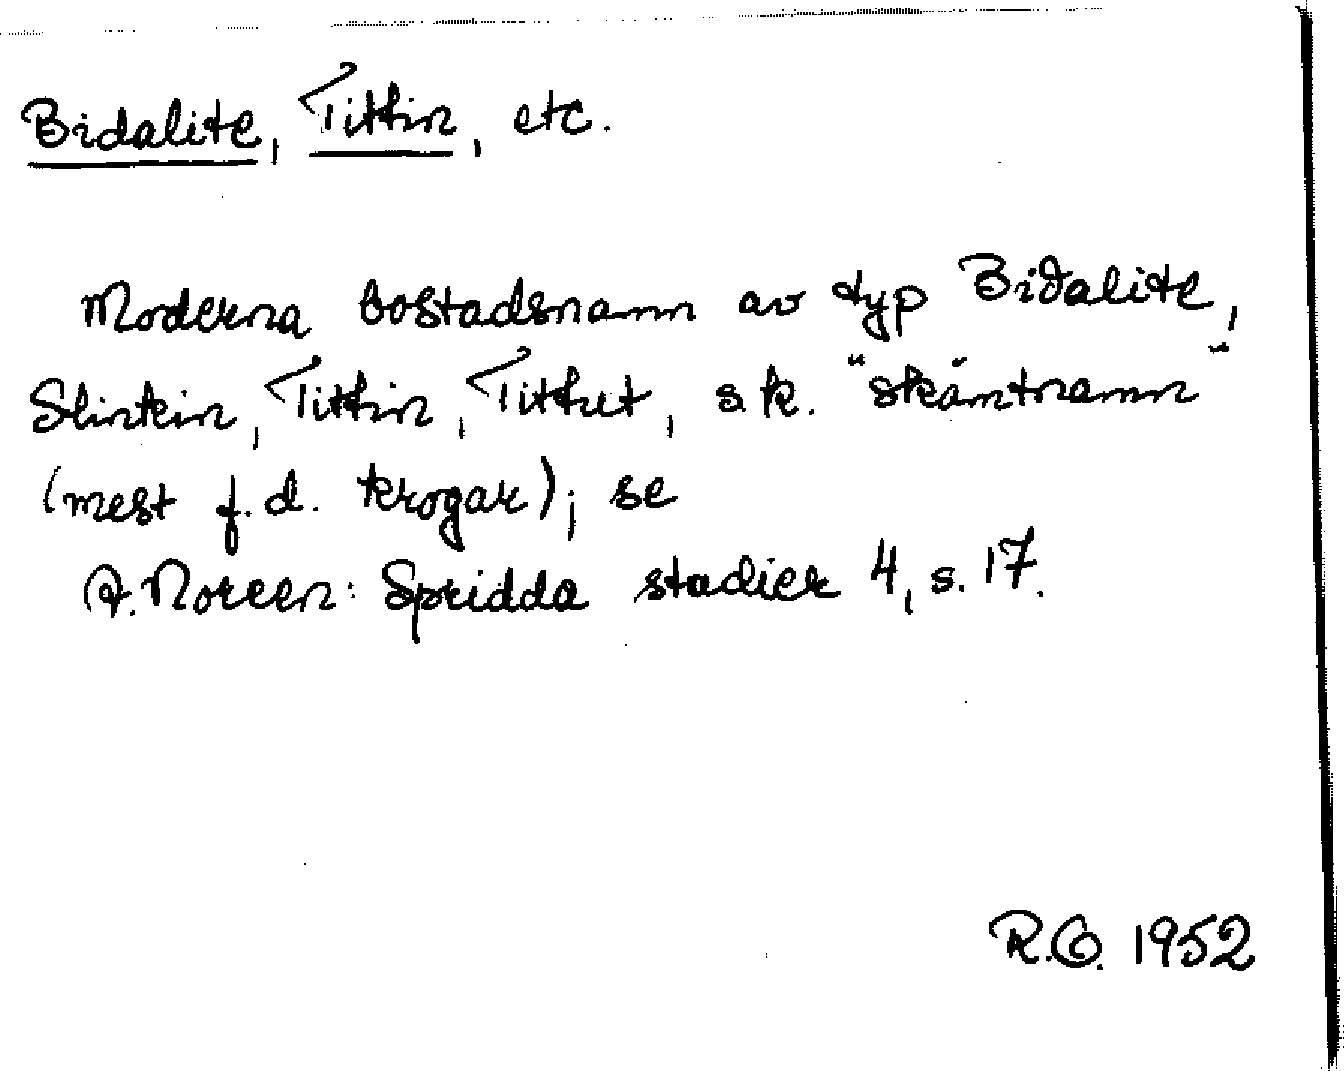 Bidalite, Tittin, etc.
Moderna bostadsnamn av typ Bidalite,
Slinkin, Tittin, Titthut, s.k. "skämtnamn"
(mest f.d. krogar); se
A. Noreen: Spridda studier 4, s. 17.
R.O. 1952